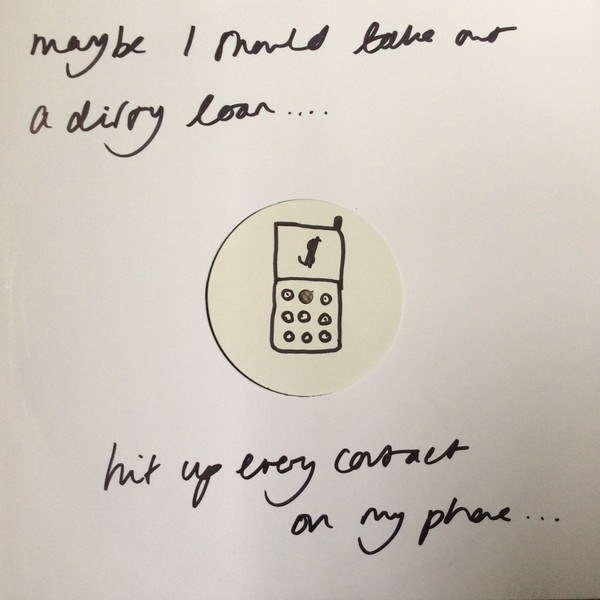 maybe I should take out
a dirty loan....
$
hit up every contact
on my phone...